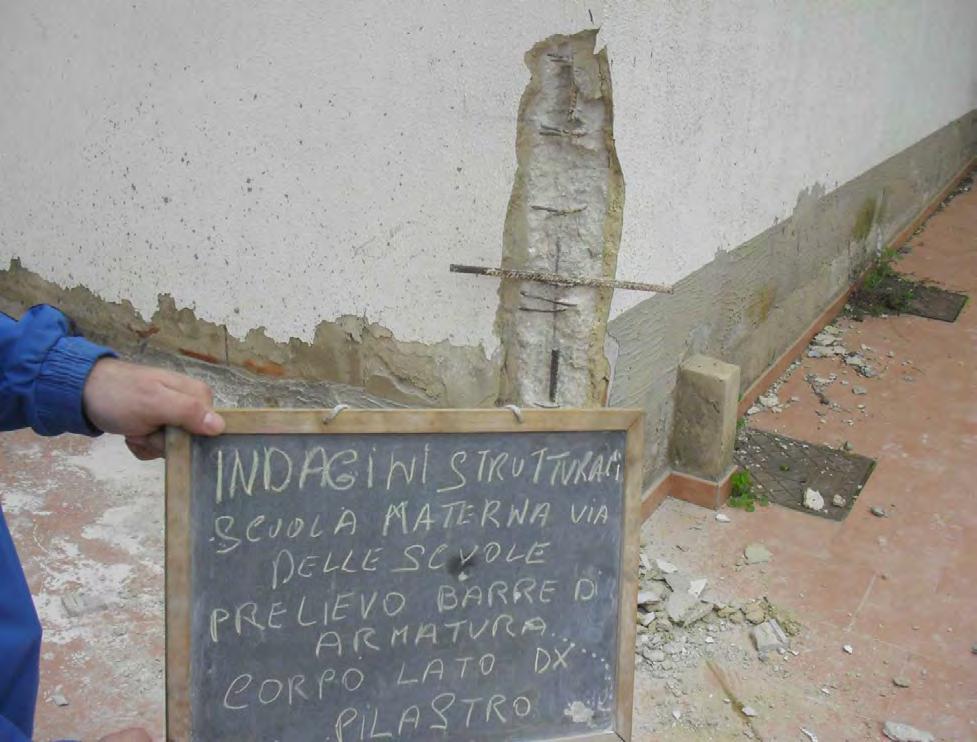 INDAGINI STRUTTURALI
SCUOLA MATERNA VIA
DELLE SCUOLE
PRELIEVO BARRE DI
ARMATURA...
CORPO LATO DX
PILASTRO